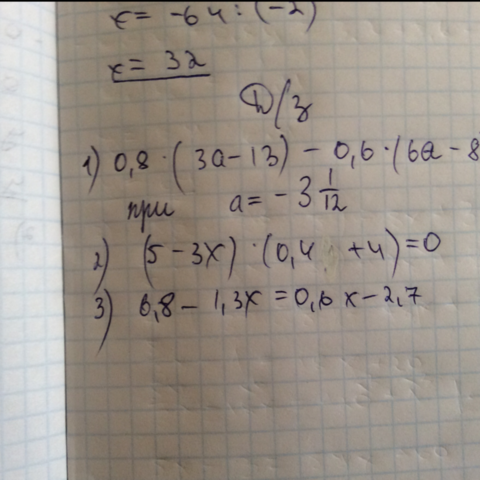 x = -64 : (-2)
x = 32
Д/з
1) 0,8 · (3a - 13) - 0,6 · (6a - 8
при a = - 3 1/12
2) (5 - 3x) · (0,4 + 4) = 0
3) 6,8 - 1,3x = 0,6x - 2,7